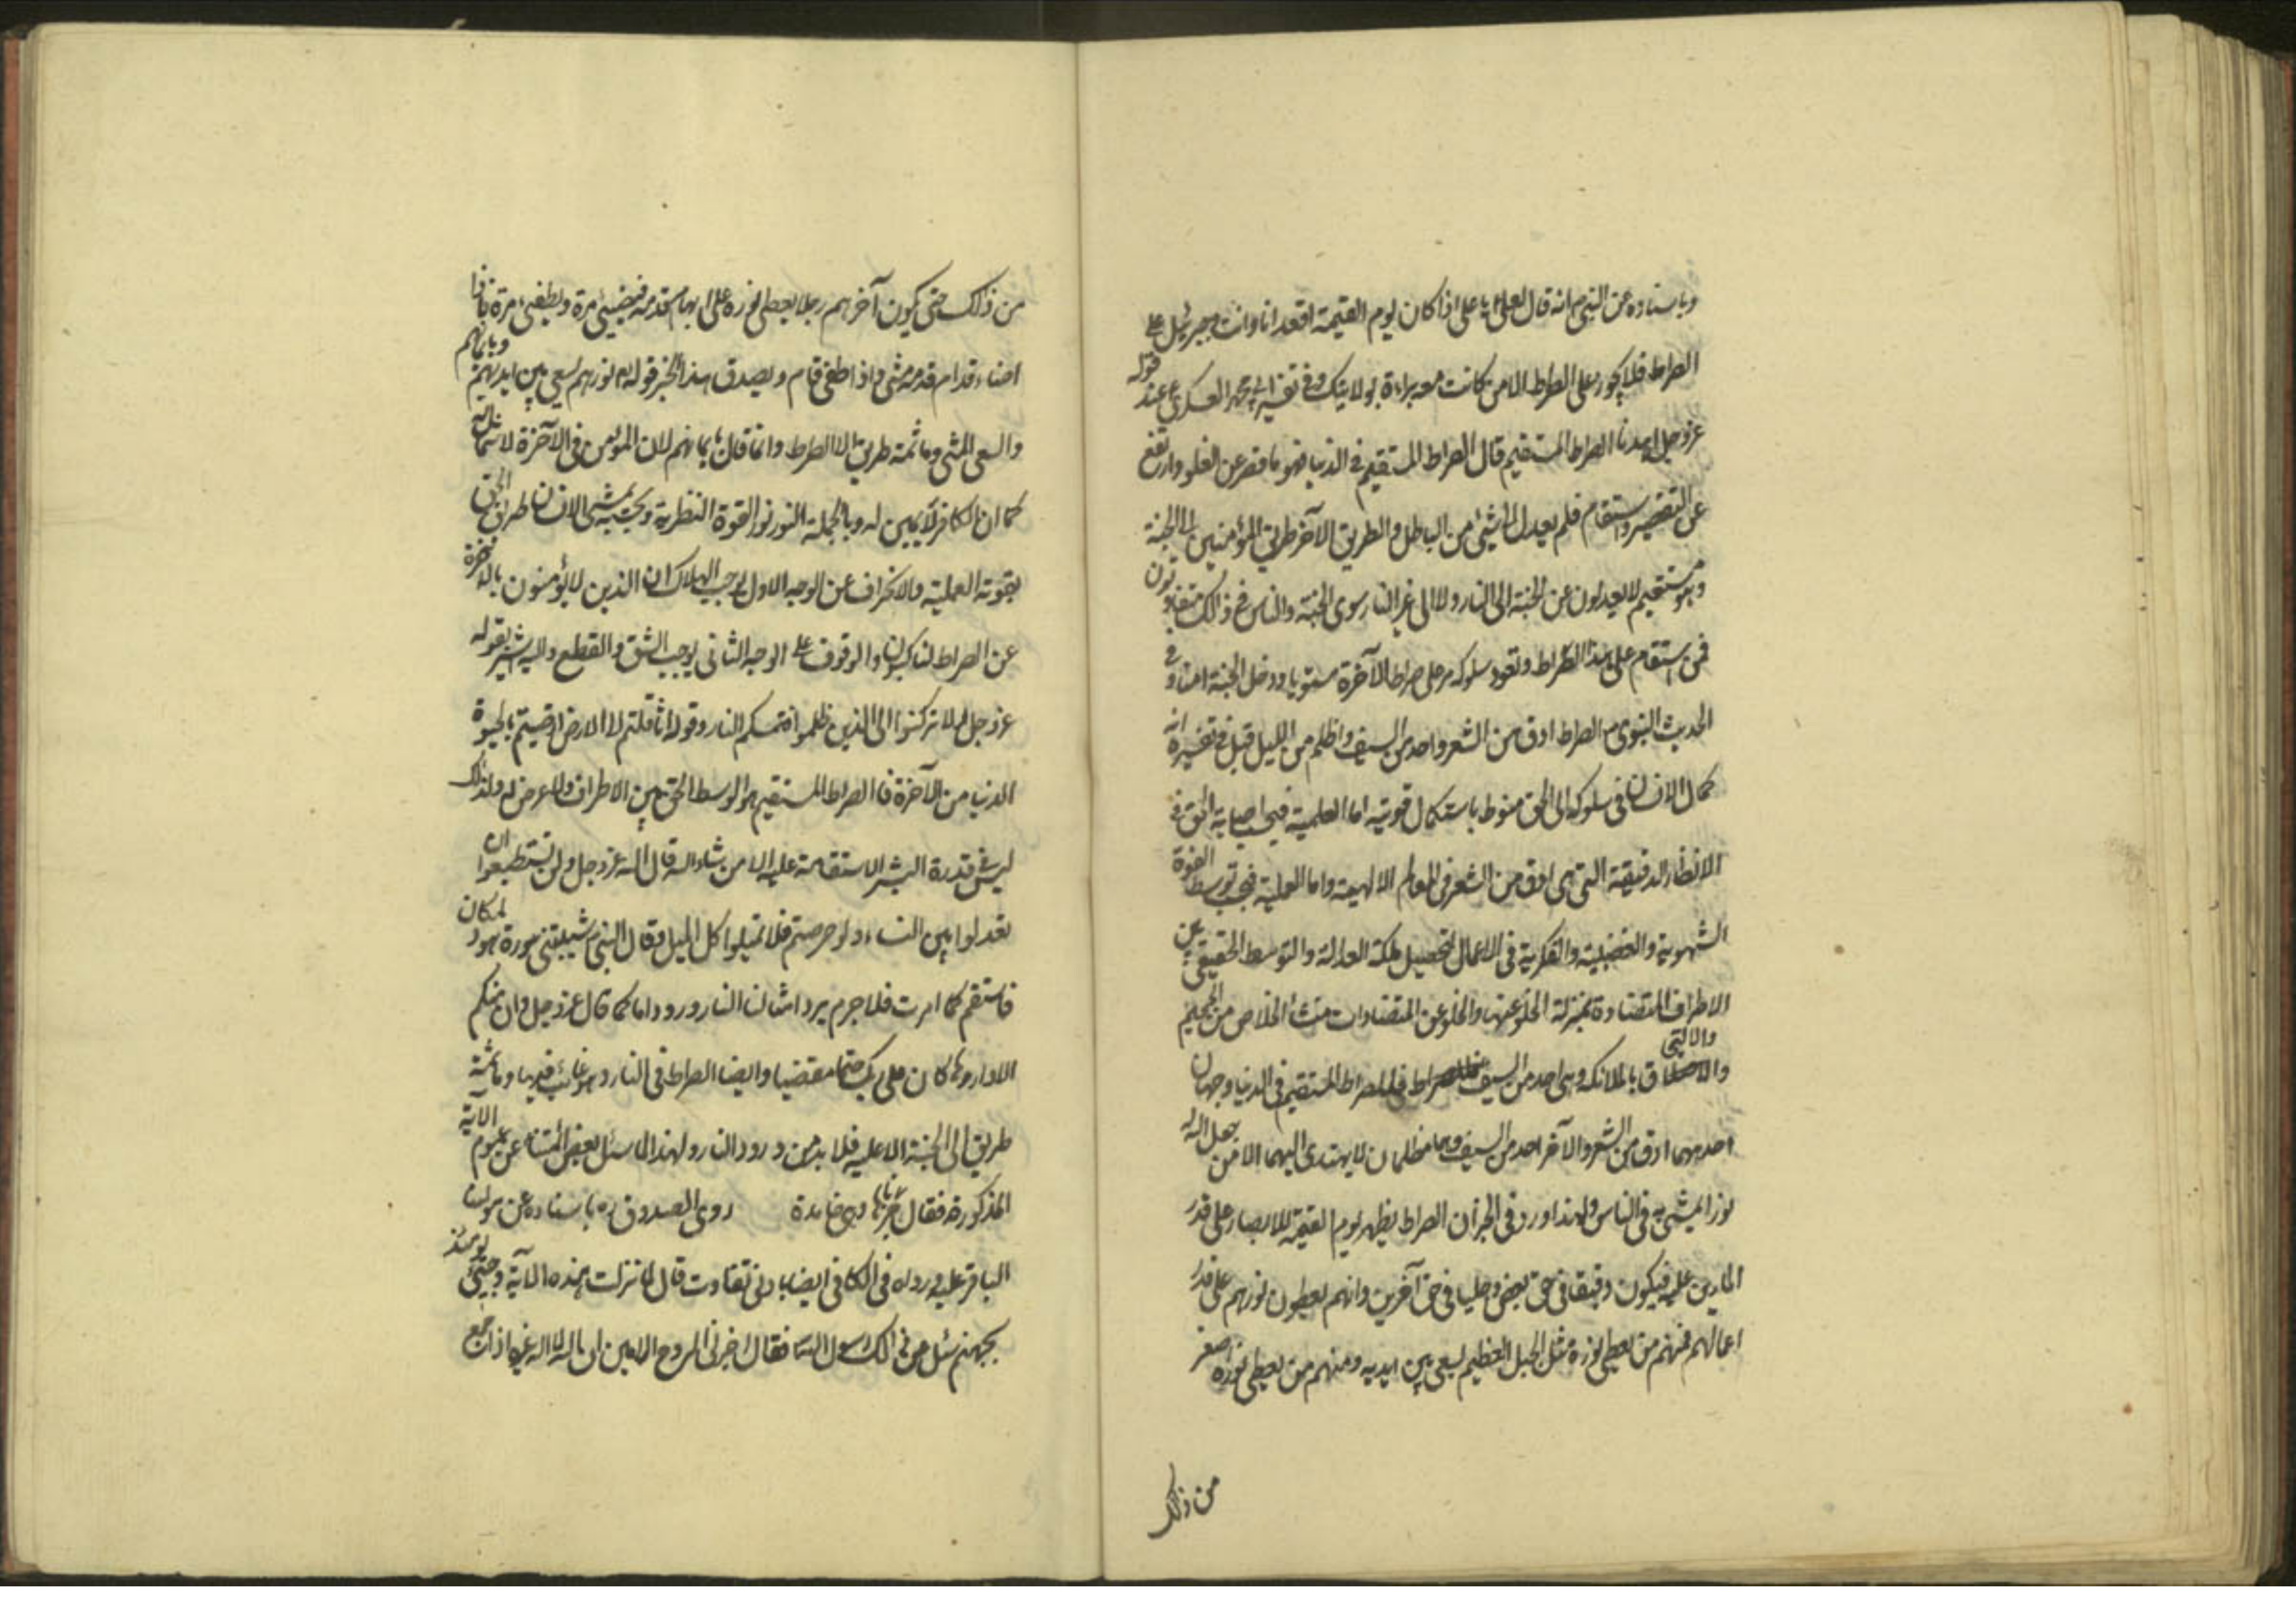 وباسناده عن النبي ص انه قال لعلي ع يا علي اذا كان يوم القيمة اقعد انا وانت وجبرئيل على
الصراط فلا يجوز على الصراط الا من كانت معه براءة بولايتك وفي تفسير ابي محمد العسكري ع عند قوله
عز وجل اهدنا الصراط المستقيم قال الصراط المستقيم في الدنيا فهو ما قصر عن الغلو وارتفع
عن التقصير واستقام فلم يعدل الى شيء من الباطل والطريق الآخر طريق المؤمنين الى الجنة
وهو مستقيم لا يعدلون عن الجنة الى النار ولا الى غير النار سوى الجنة والناس في ذلك متفاوتون
فمن استقام على هذا الصراط وتعود سلوكه مر على صراط الآخرة مستويا ودخل الجنة امنا وفي
الحديث النبوي ص الصراط ادق من الشعر واحد من السيف واظلم من الليل قيل في تفسيره انه
كمال الانسان في سلوكه الى الحق منوط باستكمال قوتيه اما العلمية فبحسب اصابة الحق في
الانظار الدقيقة التي هي ادق من الشعر في المعالم الالهية واما العملية فبحسب توسط القوة
الشهوية والغضبية والفكرية في الاعمال لتحصيل ملكة العدالة والتوسط الحقيقي بين
الاطراف المتضادة بمنزلة الخلو عنها والخلو عن المتضادات منشأ الخلاص من الجحيم
والالتحاق بالملائكة وهي احد من السيف فللصراط المستقيم في الدنيا وجهان
احدهما ادق من الشعر والآخر احد من السيف وهما مظلمان لا يهتدى اليهما الا من جعل الله له
نورا يمشي به في الناس ولهذا ورد في الخبر ان الصراط يظهر يوم القيمة للابصار على قدر
المارين عليه فيكون دقيقا في حق بعض وجليا في حق آخرين وانهم يعطون نورهم على قدر
اعمالهم فمنهم من يعطى نوره مثل الجبل العظيم يسعى بين ايديه ومنهم من يعطى نوره اصغر
من ذلك
من ذلك حتى يكون آخرهم رجلا يعطى نوره على ابهام قدمه فيضيء مرة ويطفى مرة فاذا
اضاء قدام قدمه مشى واذا طفى قام ويصدق هذا الخبر قوله نورهم يسعى بين ايديهم وبايمانهم
والسعي المشي وما ثمة طريق الا الصراط وانما قال بايمانهم لان المؤمن في الآخرة لا شمال له
كما ان الكافر لا يمين له وبالجملة النور نور القوة النظرية وبحسبه يمشي الانسان طريق الحق
بقوته العملية والانحراف عن الوجه الاول يوجب الهلاك ان الذين لا يؤمنون بالاخرة
عن الصراط لناكبون والوقوف على الوجه الثاني يوجب الشق والقطع واليه اشير بقوله
عز وجل ولا تركنوا الى الذين ظلموا فتمسكم النار وقوله اثاقلتم الى الارض ارضيتم بالحيوة
الدنيا من الآخرة فالصراط المستقيم هو الوسط الحق بين الاطراف ولا عرض له ولذلك
ليس في قدرة البشر الاستقامة عليه الا من شاء الله قال الله عز وجل ولن تستطيعوا ان
تعدلوا بين النساء ولو حرصتم فلا تميلوا كل الميل وقال النبي ص شيبتني سورة هود لمكان
فاستقم كما امرت فلا جرم يرد امثالنا النار ورودا ما كما قال عز وجل وان منكم
الا واردها كان على ربك حتما مقضيا وايضا الصراط في النار وهو غائب فيها وما ثمة
طريق الى الجنة الا عليه فلا بد من ورود النار ولهذا لما سئل بعض ائمتنا عن عموم الآية
المذكورة فقال جزناها وهي خامدة روى الصدوق ره باسناده عن مولينا
الباقر عليه ورواه في الكافي ايضا بادنى تفاوت قال لما نزلت هذه الآية وجيء يومئذ
بجهنم سئل عن ذلك رسول الله ص فقال اخبرني الروح الامين ان الله لا اله غيره اذا جمع